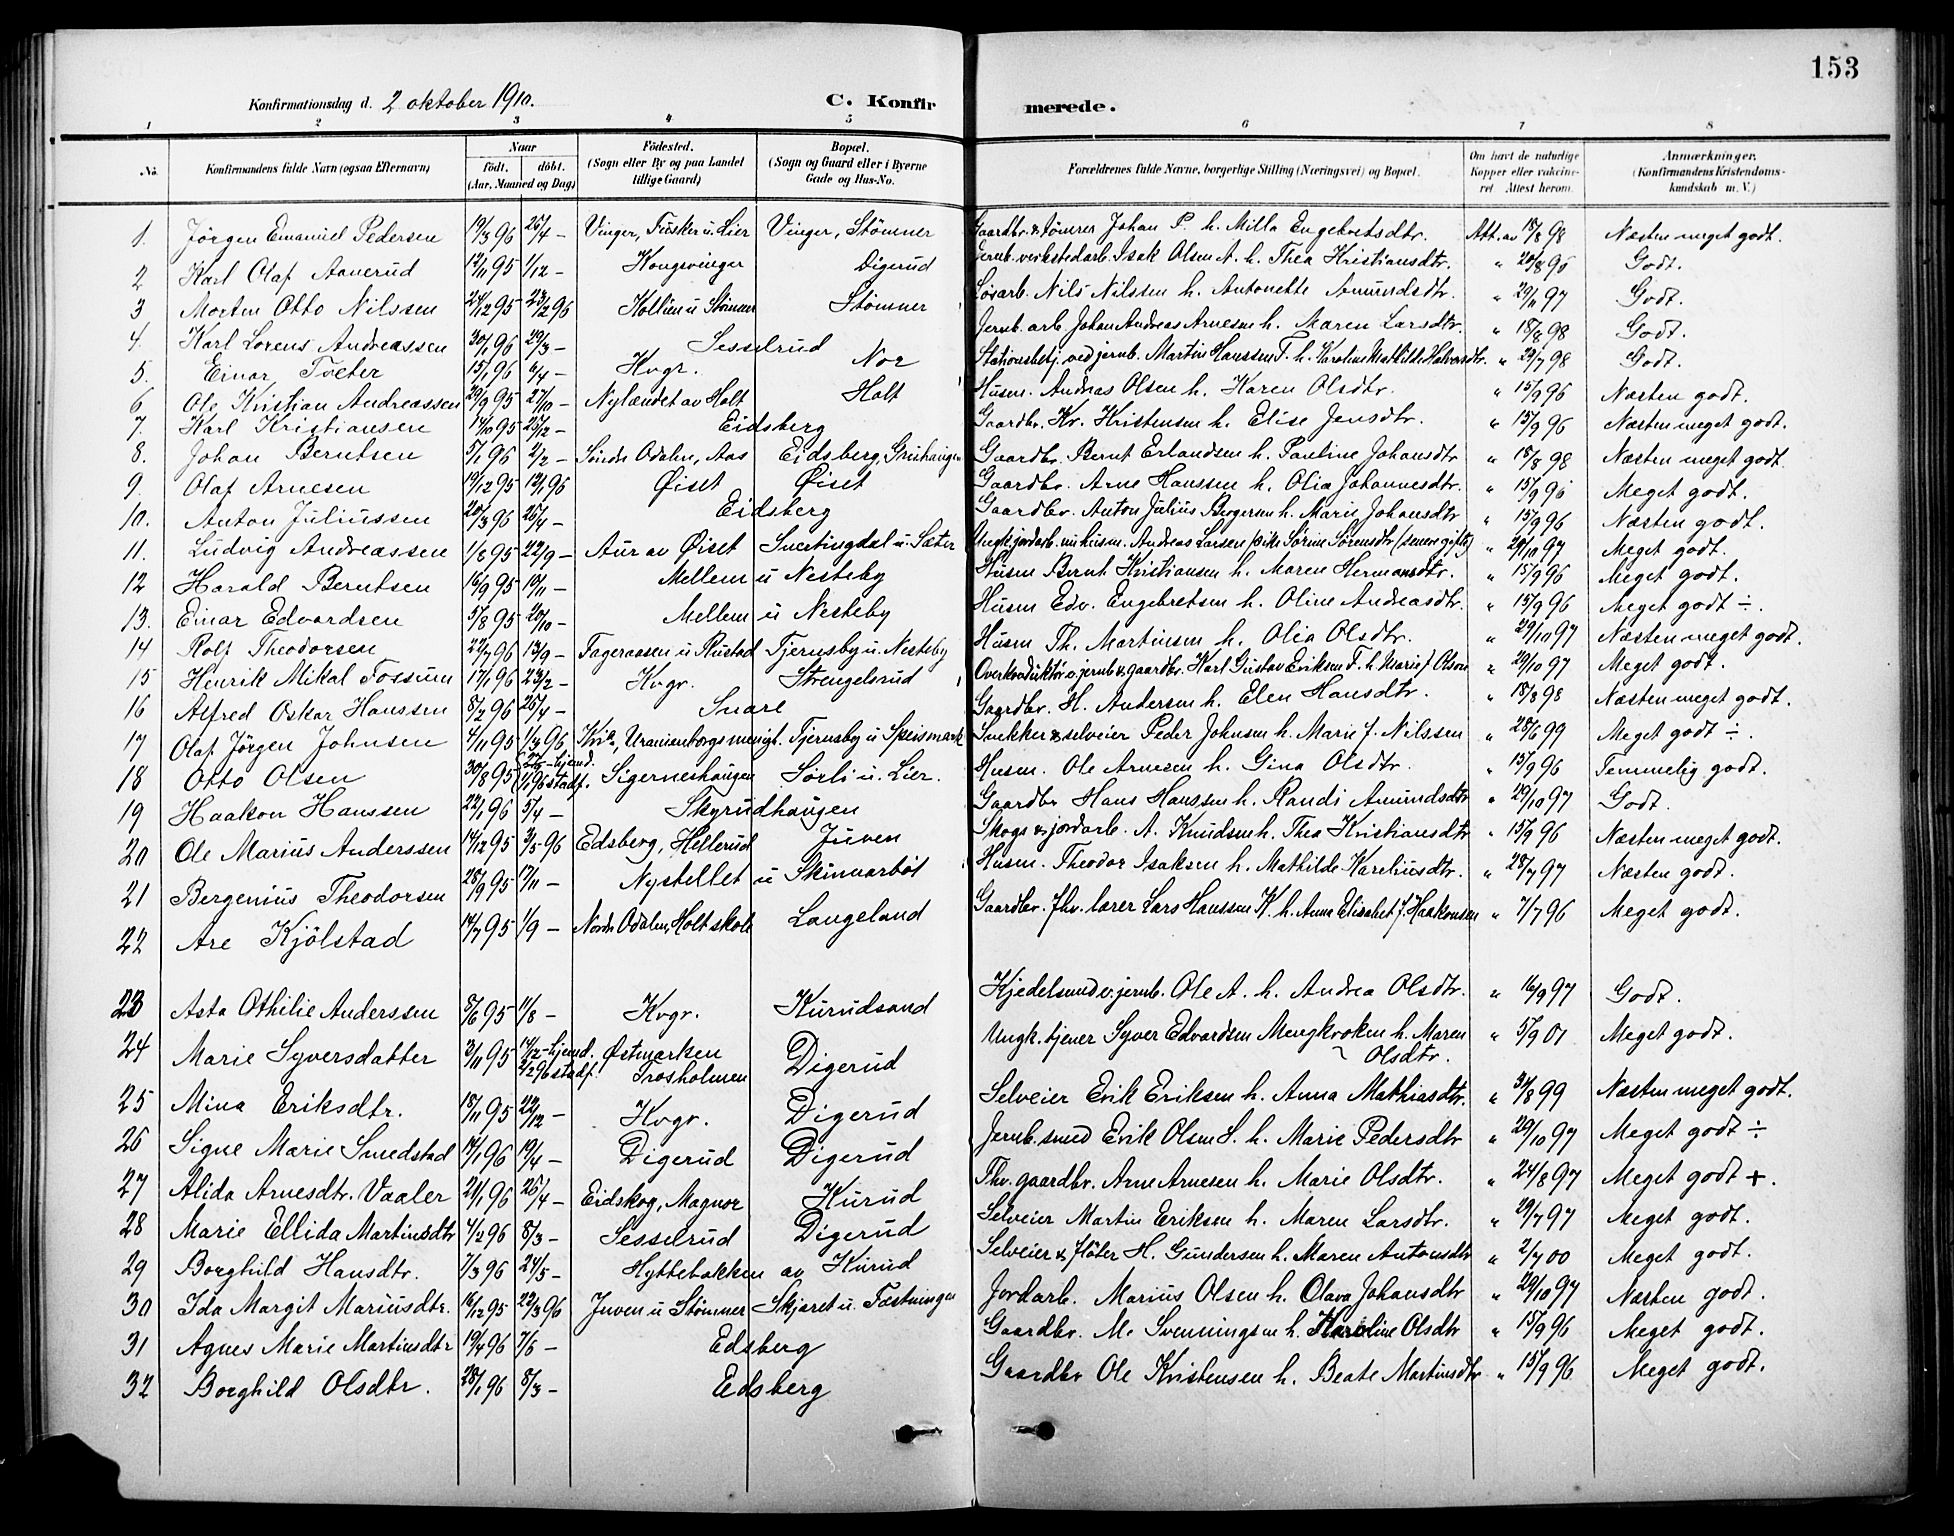 153
Konfirmationsdag d. 2 oktober 1910. C. Konfirmerede.
1 2 3 4 5 6 7 8
No. Konfirmandens fulde Navn (ogsaa Efternavn) Naar født. døbt. (Aar, Maaned og Dag) Födested. (Sogn eller By og paa Landet tillige Gaard) Bopæl. (Sogn og Gaard eller i Byerne Gade og Hus-No. Forældrenes fulde Navne, borgerlige Stilling (Næringsvei) og Bopæl. Om havt de naturlige Kopper eller vakcineret. Attest herom. Anmærkninger. (Konfirmandens Kristendomskundskab m. V.)
1. Jørgen Emanuel Pedersen 19/3 96 26/4 – Vinger, Fusker u. Lier Vinger, Stømner Gaardbr. & tømrer Johan P. h. Milla Engebretsdtr. Att. av 18/8 98 Næsten meget godt.
2 Karl Olaf Aanerud 12/11 95 1/12 – Kongsvinger Digerud Jernb. verkstedarb. Isak Olsen A. h. Thea Kristiansdtr. " 20/8 96 Godt.
3 Morten Otto Nilssen 24/12 95 23/2 96 Stømner Løsarb. Nils Nilssen h. Antonette Amundsdtr. " 29/11 97 Godt.
4. Karl Lorens Andreassen 30/1 96 29/3 – Sesselrud Jernb. arb. Johan Andreas Arnesen h. Maren Larsdtr. " 18/8 98 Godt.
5. Einar Tveter 15/1 96 6/4 – Kvgr. Nor Stationsbetj. ved jernb. Martin Hanssen T. h. Karoline Mathilde Halvorsdtr. " 29/7 98 Godt.
6. Ole Kristian Andreassen 29/9 95 27/10 – Nylændet av Holt Holt Husm. Andreas Olsen h. Karen Olsdtr. " 15/9 96 Næsten godt.
7. Karl Kristiansen 17/10 95 25/12 – Eidsberg Gaardbr. Kr. Kristensen h. Elise Jensdtr. " 15/9 96 Næsten meget godt.
8. Johan Berntsen 5/1 96 2/2 – Søndre Odalen, Aas Eidsberg, Gruhaugen Gaardbr. Bernt Erlandsen h. Pauline Johansdtr " 18/8 98 Næsten meget godt
9. Olaf Arnesen 19/12 95 12/1 96 Øiset Øiset Gaardbr. Arne Hanssen h. Olia Johannesdtr. " 15/9 96 Meget godt.
10. Anton Juliussen 20/3 96 26/4 – Eidsberg Gaardbr. Anton Julius Bergersen h. Marie Johansdtr " 15/9 96 Næsten godt.
11. Ludvig Andreassen 1/8 95 22/9 – Aur av Øiset Svertingdal u. Sæter Ungk. jordarb. nu husm. Andreas Larsen pike Sørine Sørensdtr (senere gifte) " 29/10 97 Meget godt.
12 Harald Berntsen 16/9 95 10/11 – Mellem u Nesteby Husm Bernt Kristiansen h. Maren Hermansdtr. " 15/9 96 Meget godt.
13. Einar Edvardsen 5/8 95 20/10 – Mellem u Nesteby Husm Edv. Engebretsen h. Oline Andreasdtr. " 15/9 96 Meget godt ÷.
14 Rolf Theodorsen 22/7 96 13/9 – Fageraasen u Rustad Tjernsby u. Nesteby Husm Th. Martinsen h. Olia Olsdtr. " 29/10 97 Næsten meget godt.
15 Henrik Mikal Fossum 17/1 96 23/2 – Kvgr. Strengelsrud Overkonduktør v. jernb. & gaardbr. Karl Gustav Eriksen F. h. Marie f Olsen " 29/10 97 Meget godt.
16 Alfred Oskar Hanssen 8/2 96 26/4 – Snare Gaardbr. H. Andersen h. Elen Hansdtr. " 18/8 98 Næsten meget godt.
17 Olaf Jörgen Johnsen 4/11 95 1/3 96 Kria, Uranienborgs menigh. Tjernsby u Speismark Snekker & selveier Peder Johnsen h. Marie f. Nilssen " 28/6 99 Meget godt ÷.
18 Otto Olsen 30/8 95 hjemd. 1/1 96 stadf. Sigerneshaugen Sørli u. Lier. Husm. Ole Arnesen h. Gina Olsdtr. " 15/9 96 Temmelig godt.
19 Haakon Hanssen 22/1 96 5/4 – Skyrudhaugen Gaardbr Hans Hanssen h. Randi Amundsdtr " 29/10 97 Godt.
20 Ole Marius Anderssen 14/12 95 3/5 96 Edsberg, Hellerud Juven Skogs & jordarb. A. Knudsen h. Thea Kristiansdtr " 15/9 96 Næsten meget godt.
21 Bergenius Theodorsen 28/9 95 17/11 – Nystellet u Skinnarböl Husm. Theodor Isaksen h. Mathilde Kareliusdtr. " 28/7 97 Næsten godt.
22 Are Kjölstad 14/7 95 1/9 – Nordre Odalen, Holt skole Langeland Gaardbr. fhv. lærer Lars Hanssen K. h. Anna Elisabet f. Haakonsen " 7/7 96 Meget godt.
23 Asta Othilie Anderssen 8/6 95 11/8 – Kvgr. Kurudsand Kjedelsmed v. jernb. Ole A. h. Andrea Olsdtr. " 16/9 97 Godt.
24 Marie Syversdatter 3/11 95 14/12 – hjemd. 2/2 96 stadf. Østmarken Trosholmen Digerud Ungk. tjener Syver Edvardsen Mengkroken h. Maren Olsdtr. " 5/9 01 Meget godt.
25 Mina Eriksdtr. 18/11 95 22/12 – Kvgr. Digerud Selveier Erik Eriksen h. Anna Mathiasdtr. " 31/8 99 Næsten meget godt.
26 Signe Marie Smedstad 14/1 96 19/4 – Digerud Digerud Jernb. smed Erik Olsen S. h. Marie Pedersdtr " 29/10 97 Meget godt ÷
27 Alida Arnesdtr. Vaaler 21/1 96 26/4 – Eidskog, Magnor Kurud Fhv. gaardbr. Arne Arnesen h. Marie Olsdtr. " 24/8 97 Meget godt +.
28 Marie Ellida Martinsdtr 4/2 96 8/3 – Sesselrud Digerud Selveier Martin Eriksen h. Maren Larsdtr. " 29/7 97 Meget godt.
29 Borghild Hansdtr. 7/3 96 24/5 – Hyttebakken av Kurud Selveier & fløter H. Gundersen h. Maren Antonsdtr " 2/7 00 Meget godt.
30 Ida Margit Mariusdtr. 16/12 95 22/3 96 Juven u Stømner Skjæret u. Fæstningen Jordarb. Marius Olsen h. Olava Johansdtr " 29/10 97 Næsten godt.
31 Agnes Marie Martinsdtr 19/4 96 7/6 – Edsberg Gaardbr. M. Svenningsen h. Karoline Olsdtr " 15/9 96 Meget godt.
32 Borghild Olsdtr. 28/1 96 8/3 – Edsberg Gaardbr Ole Kristensen h. Beate Martinsdtr " 15/9 96 Meget godt.